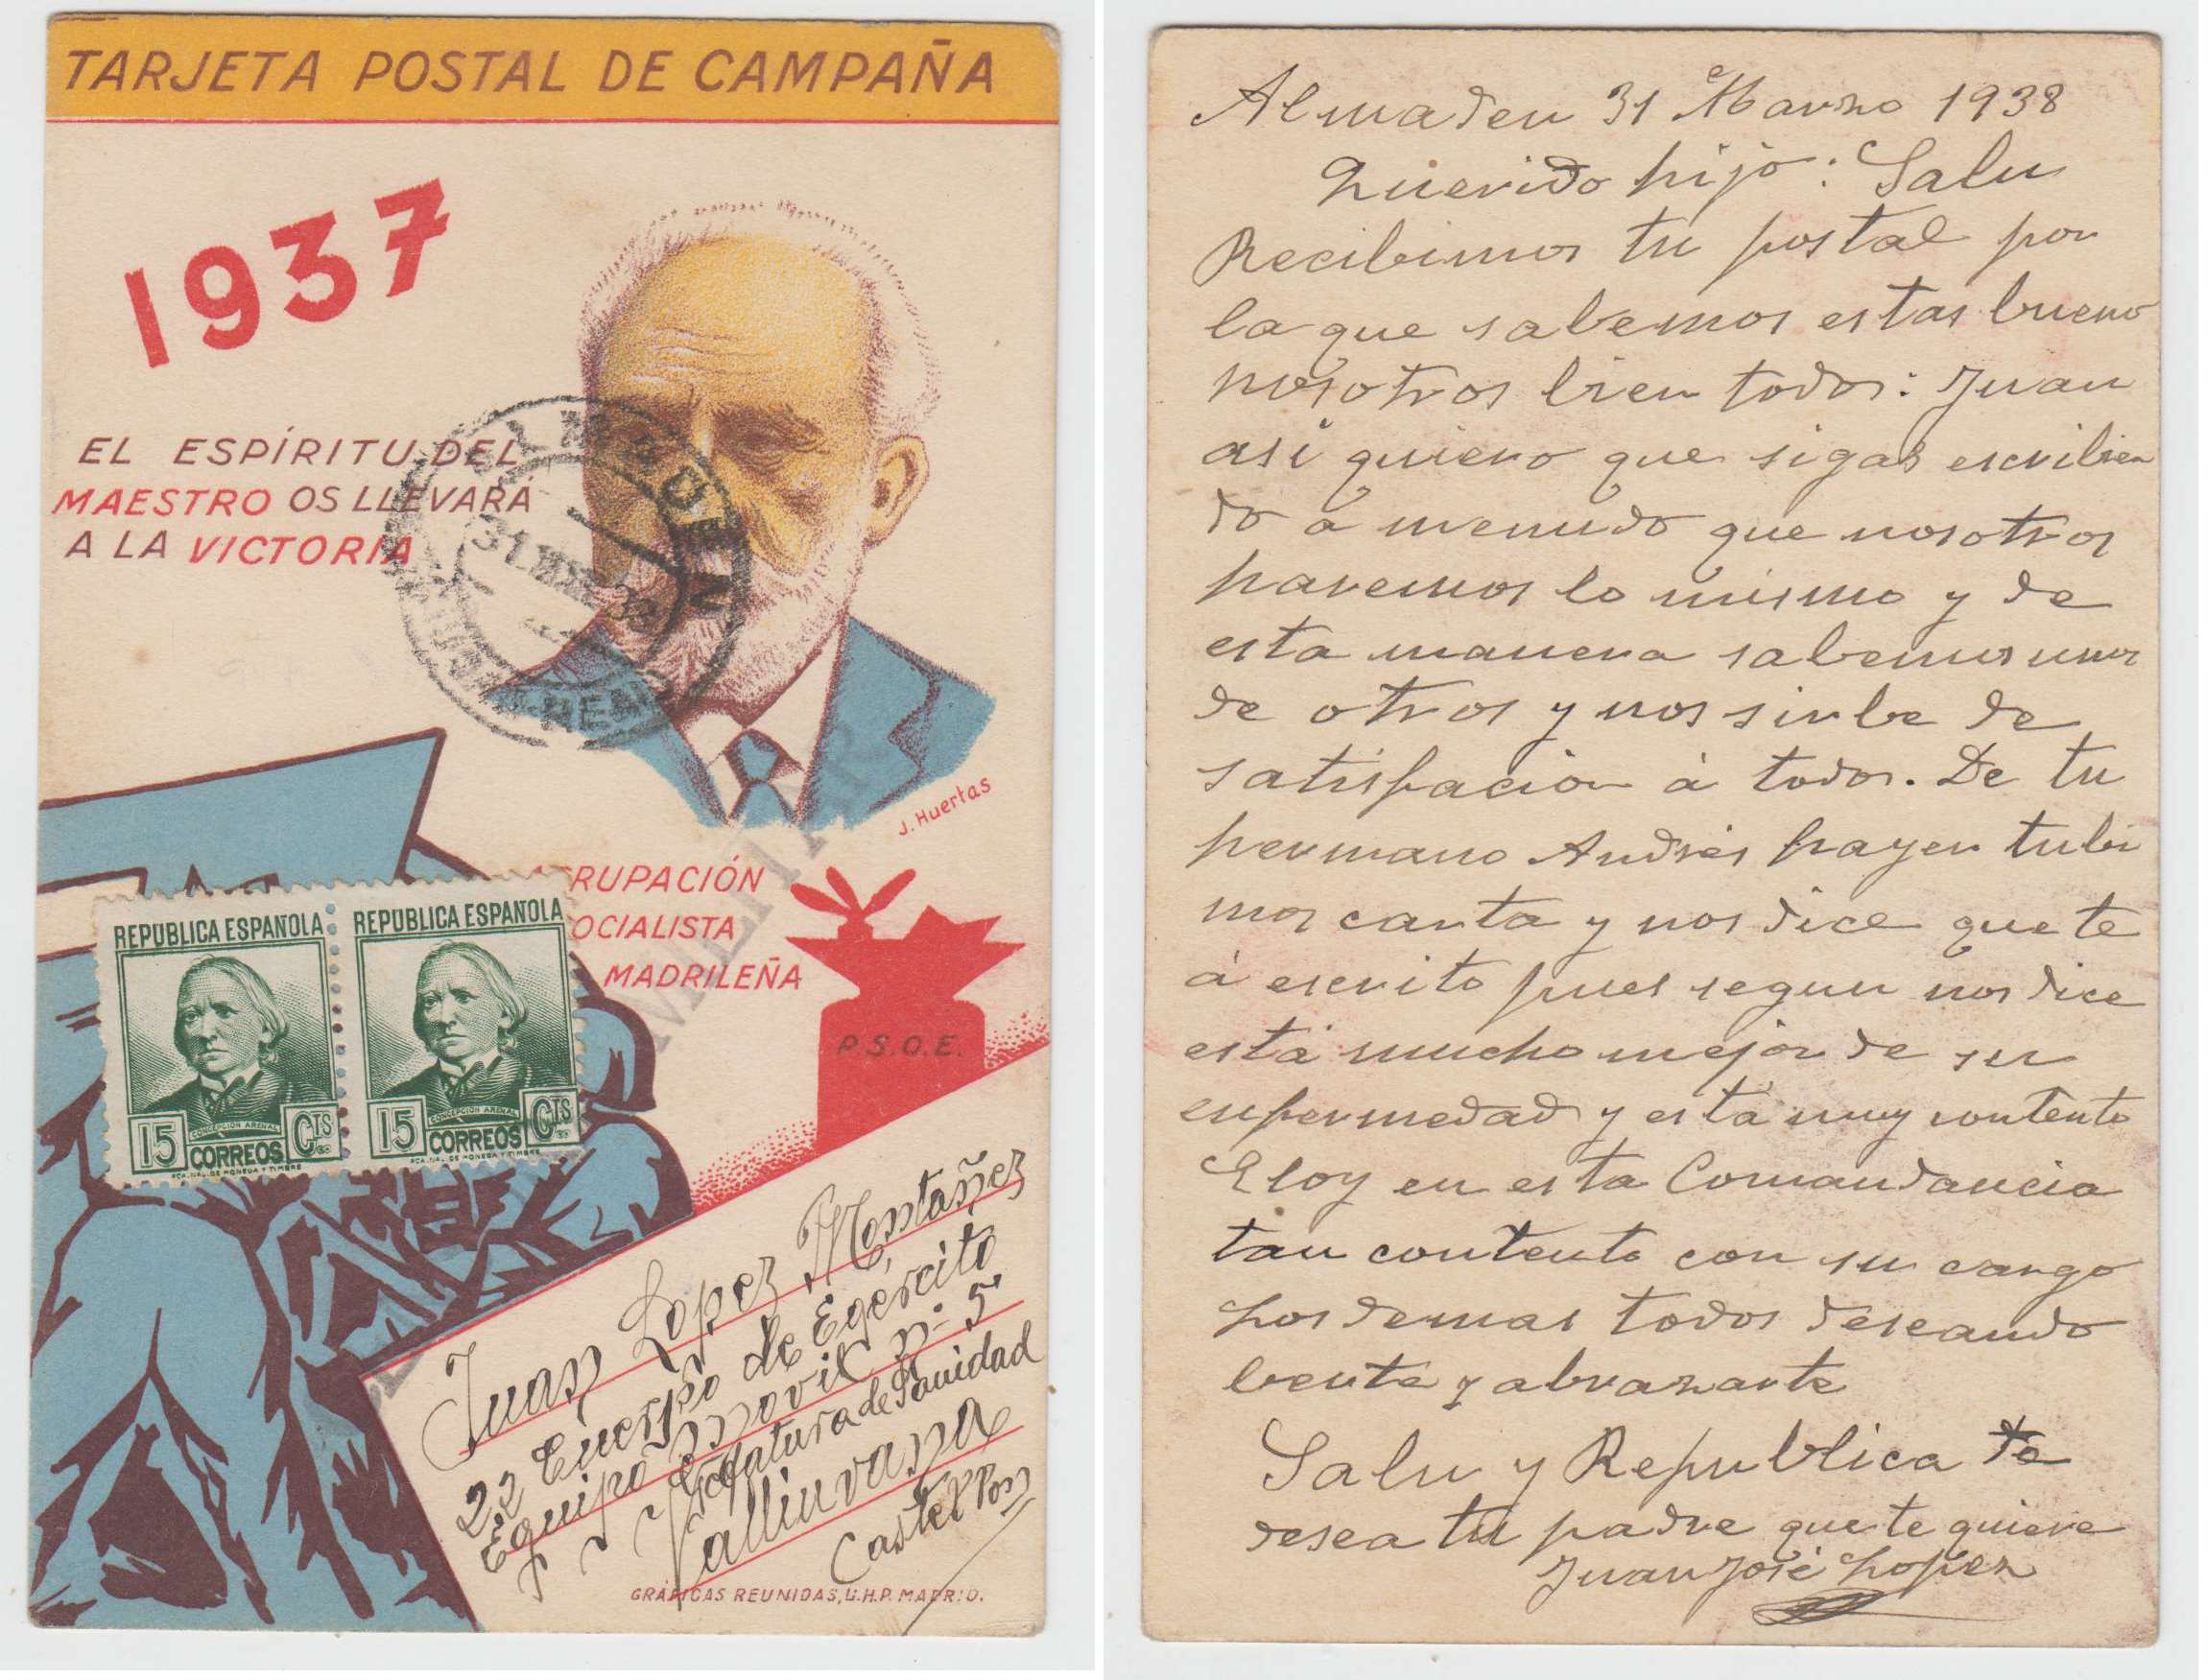 TARJETA POSTAL DE CAMPAÑA
1937
EL ESPÍRITU DEL
MAESTRO OS LLEVARÁ
A LA VICTORIA
ALMADEN
31 MAR 38
J. Huertas
RUPACIÓN
OCIALISTA
MADRILEÑA
P.S.O.E.
REPÚBLICA ESPAÑOLA
15 CTS
CONCEPCIÓN ARENAL
CORREOS
FCA. NAL. DE MONEDA Y TIMBRE
REPÚBLICA ESPAÑOLA
15 CTS
CONCEPCIÓN ARENAL
CORREOS
FCA. NAL. DE MONEDA Y TIMBRE
Juan Lopez Montañez
22 Cuerpo de Egército
Equipo movil nº 5
Jefatura de Sanidad
Vallivana
Castellon
GRÁFICAS REUNIDAS, U.H.P. MADRID.
Almaden 31 Marzo 1938
Querido hijo: Salu
Recibimos tu postal por
la que sabemos estas bueno
nosotros bien todos: Juan
asi quiero que sigas escribien
do a menudo que nosotros
haremos lo mismo y de
esta manera sabemos unos
de otros y nos sirbe de
satisfacion á todos. De tu
hermano Andrés hayer tubi
mos carta y nos dice que te
á escrito pues segun nos dice
está mucho mejor de su
enfermedad y está muy contento
Eloy en esta Comandancia
tan contento con su cargo
Los demas todos deseando
berte y abrazarte
Salu y Republica te
desea tu padre que te quiere
Juan José Lopez